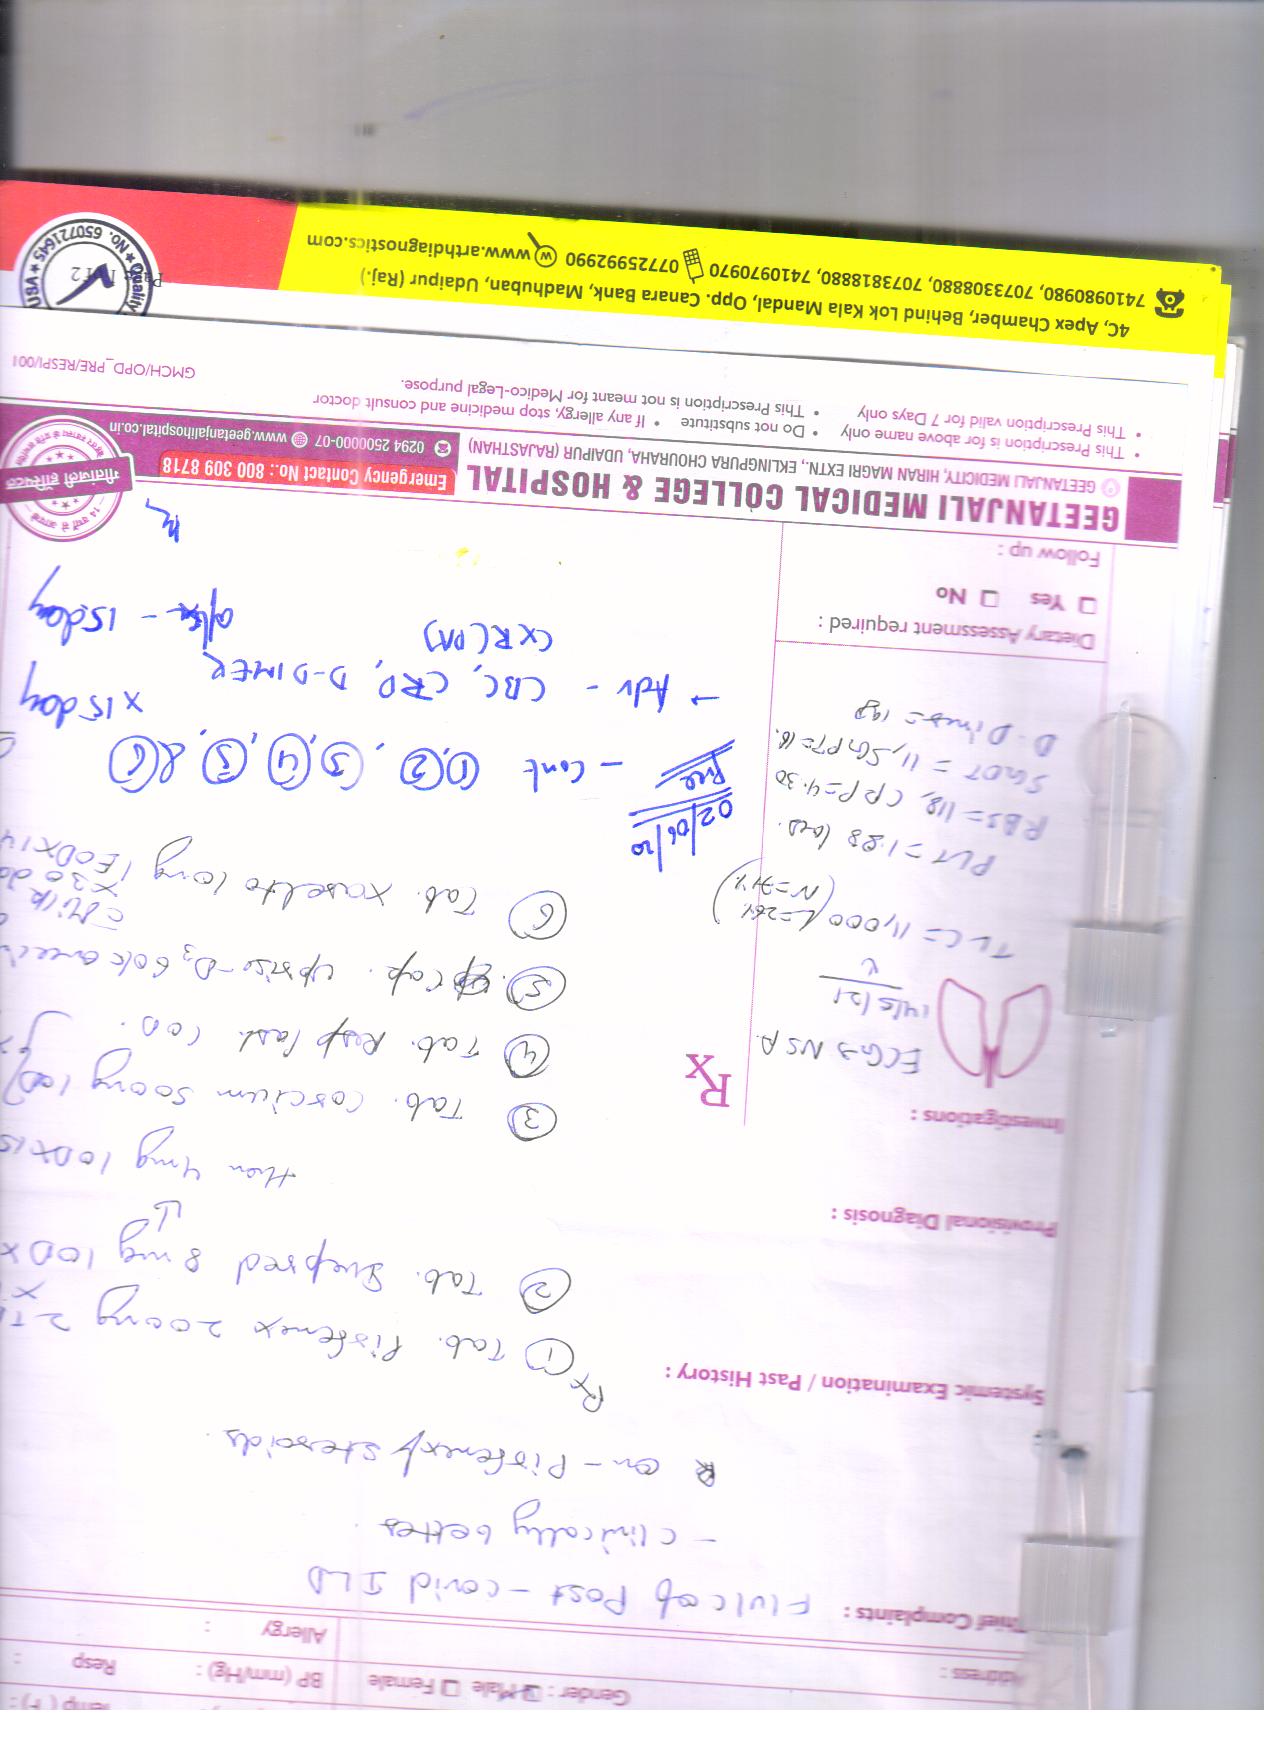 Temp ( F) :
Gender : Male Female
BP (mm/Hg) :
Resp :
Address :
Allergy :
Chief Complaints :
F/U/C of Post-covid ILD
- clinically better.
on - Pirfenex / steroids.
Systemic Examination / Past History :
Rx
① Tab. Pirfenex 200mg 2
② Tab. 8mg 1OD x
↓
then 4mg 1OD x 15
③ Tab. 500mg 1OD
④ Tab. 1OD.
⑤ Cap. Uprise-D3 60k weekly
c Milk
⑥ Tab. Xarelto 10mg 1 EOD x 14
Provisional Diagnosis :
Investigations :
ECG → NSA.
14/5/21
TLC = 11,000 (L=26% N=71%)
PLT = 1.88 lacs.
RBS = 118, CRP = 4.30
SGOT = 11, SGPT = 18.
D. Dimer = 192
Rx
02/06/20
- Cont ① ②, ③, ④, ⑤, & ⑥
x 15 day
→ Adv - CBC, CRP, D-DIMER
CXR (PA)
after - 15 day
Dietary Assessment required :
Yes No
Follow up :
GEETANJALI MEDICAL COLLEGE & HOSPITAL
Emergency Contact No.: 800 309 8718
GEETANJALI MEDICITY, HIRAN MAGRI EXTN., EKLINGPURA CHOURAHA, UDAIPUR (RAJASTHAN)
0294 2500000-07 www.geetanjalihospital.co.in
गीतांजली हॉस्पिटल
• This Prescription is for above name only • Do not substitute • If any allergy, stop medicine and consult doctor
• This Prescription valid for 7 Days only • This Prescription is not meant for Medico-Legal purpose.
GMCH/OPD_PRE/RESPI/001
4C, Apex Chamber, Behind Lok Kala Mandal, Opp. Canara Bank, Madhuban, Udaipur (Raj.)
7410980980, 7073308880, 7073818880, 7410970970 07725992990 www.arthdiagnostics.com
USA ★ Quality ★ No. 650721645